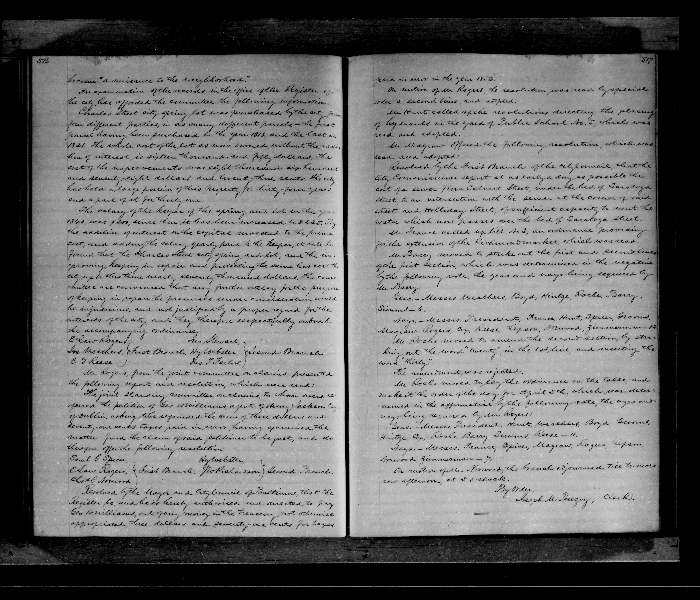 516
become "a nuisance to the neighborhood."
An examination of the records in the office of the Register of
the city has afforded the committee the following information
Charles Street city spring lot was purchased by the city from
from different parties in its owning, different periods - the first
parcel having been purchased in the year 1813, and the last in
1821. The whole cost of the lot as now owned without the reser-
tion of interest is sixteen thousand and fifty dollars. The
cost of the improvements was eight thousand six hundred
and seventy eight dollars and twenty three cents the city
has held a large portion of this property for thirty four years
and a part of it for thirty one.
The salary of the keeper of the spring and lot in the year
1842 was $200 since then it has been increased to $
the addition of interest on the capital invested to the prime
cost, and adding the salary yearly paid to the keeper, it will be
found that the Charles street city spring and lot, and the im-
proving, keeping in repair and protecting the same has cost the
city up to this time nearly seventy thousand dollars. The com-
mittee are convinced that any further outlay for the purpose
of keeping in repair the premises under consideration would
be injudicious, and not justified by a proper regard for the
interests of the city, and they therefore respectfully submit
the accompanying ordinance.
E Law Rogers
Jos Weathers First Branch Hy Webster Second Branch
E. T. Reese
Mr. Rogers, from the joint committee on claims presented
the following report and resolution, which were read:
The joint standing committee on claims to whom was re-
ferred the petition of Geo Williams agent of Mary Jackson
of Dublin, asking that refunded the sum of three dollars and
seventy one cents taxes paid in error, having examined the
matter find the claim of said petitioner to be just, and do
therefore offer the following resolution
Saml E Spicer Hy Webster
E Law Rogers First Branch Second Branch
Chas L Norwood
Resolved by the Mayor and City Council of Baltimore, that the
Register be and he is hereby authorized and directed to pay
Geo Williams, out of any money in the Treasury, not otherwise
appropriated three dollars and seventy one cents for taxes
517
paid in error in the year 1852.
On motion of Mr. Rogers, the resolution was read by special
order a second time, and adopted.
called up the resolution directing the placing
of hydrants in the yard of Public School No. 5, which was
read and adopted.
Mr Magraw offered the following resolution, which was
read and adopted:
Resolved by the First Branch of the City Council, that the
City Commissioner report at as early a day as possible the
cost of a sewer from Calvert Street under the bed of Saratoga
street to an intersection with the sewer at the corner of said
street and Holliday Street, of sufficient capacity to vent the
water which now passes over the bed of Saratoga Street.
Mr. France called up bill No 2, an ordinance providing
for the extension of the Richmond market, which was read.
Mr Barry moved to strike out the first and second lines
of the first section, which was determined in the negative
by the following vote, the yeas and nays being required by
Mr. Barry.
Yeas - Messrs Weathers, Boyd, Hintze, Roche, Barry,
Simms - 6.
Nays - Messrs President, France, Hunt, Spicer, Grooms,
Magraw, Rogers, Cox, Reese, Kepson, Norwood, Zimmerman - 12
Mr Roche moved to amend the second section by stri-
king out the word "twenty" in the 1st line, and inserting the
word "thirty"
The amendment was rejected.
Mr Roche moved to lay the ordinance on the table and
make it the order of the day for April 5th, which was deter-
mined in the affirmative by the following vote, the ayes and
nays being required by Mr Rogers:
Yeas - Messrs President, Hunt, Weathers, Boyd,
Hintze, Cox, Roche, Barry, Simms, Reese - 11.
Nays - Messrs. France, Spicer, Magraw, Rogers, Kepson
Norwood, Zimmerman - 7.
On motion of Mr Norwood, the Branch adjourned till tomorrow
afternoon, at 5 o'clock.
By order
Clerk.